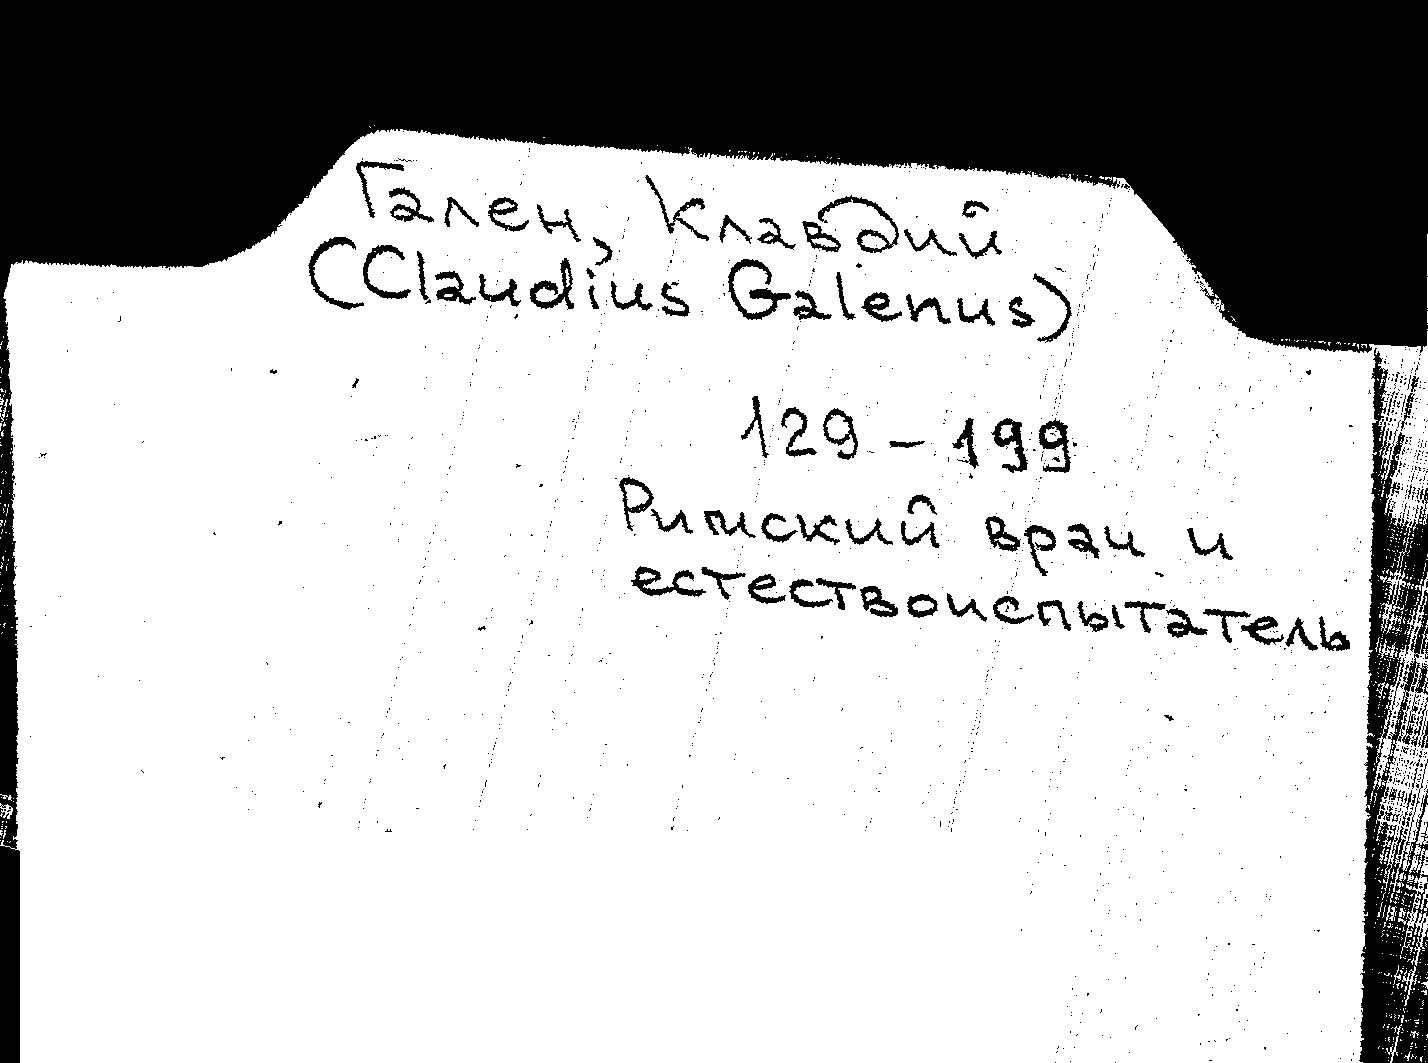 Гален, Клавдий
(Claudius Galenus)
129 – 199
Римский врач и
естествоиспытатель